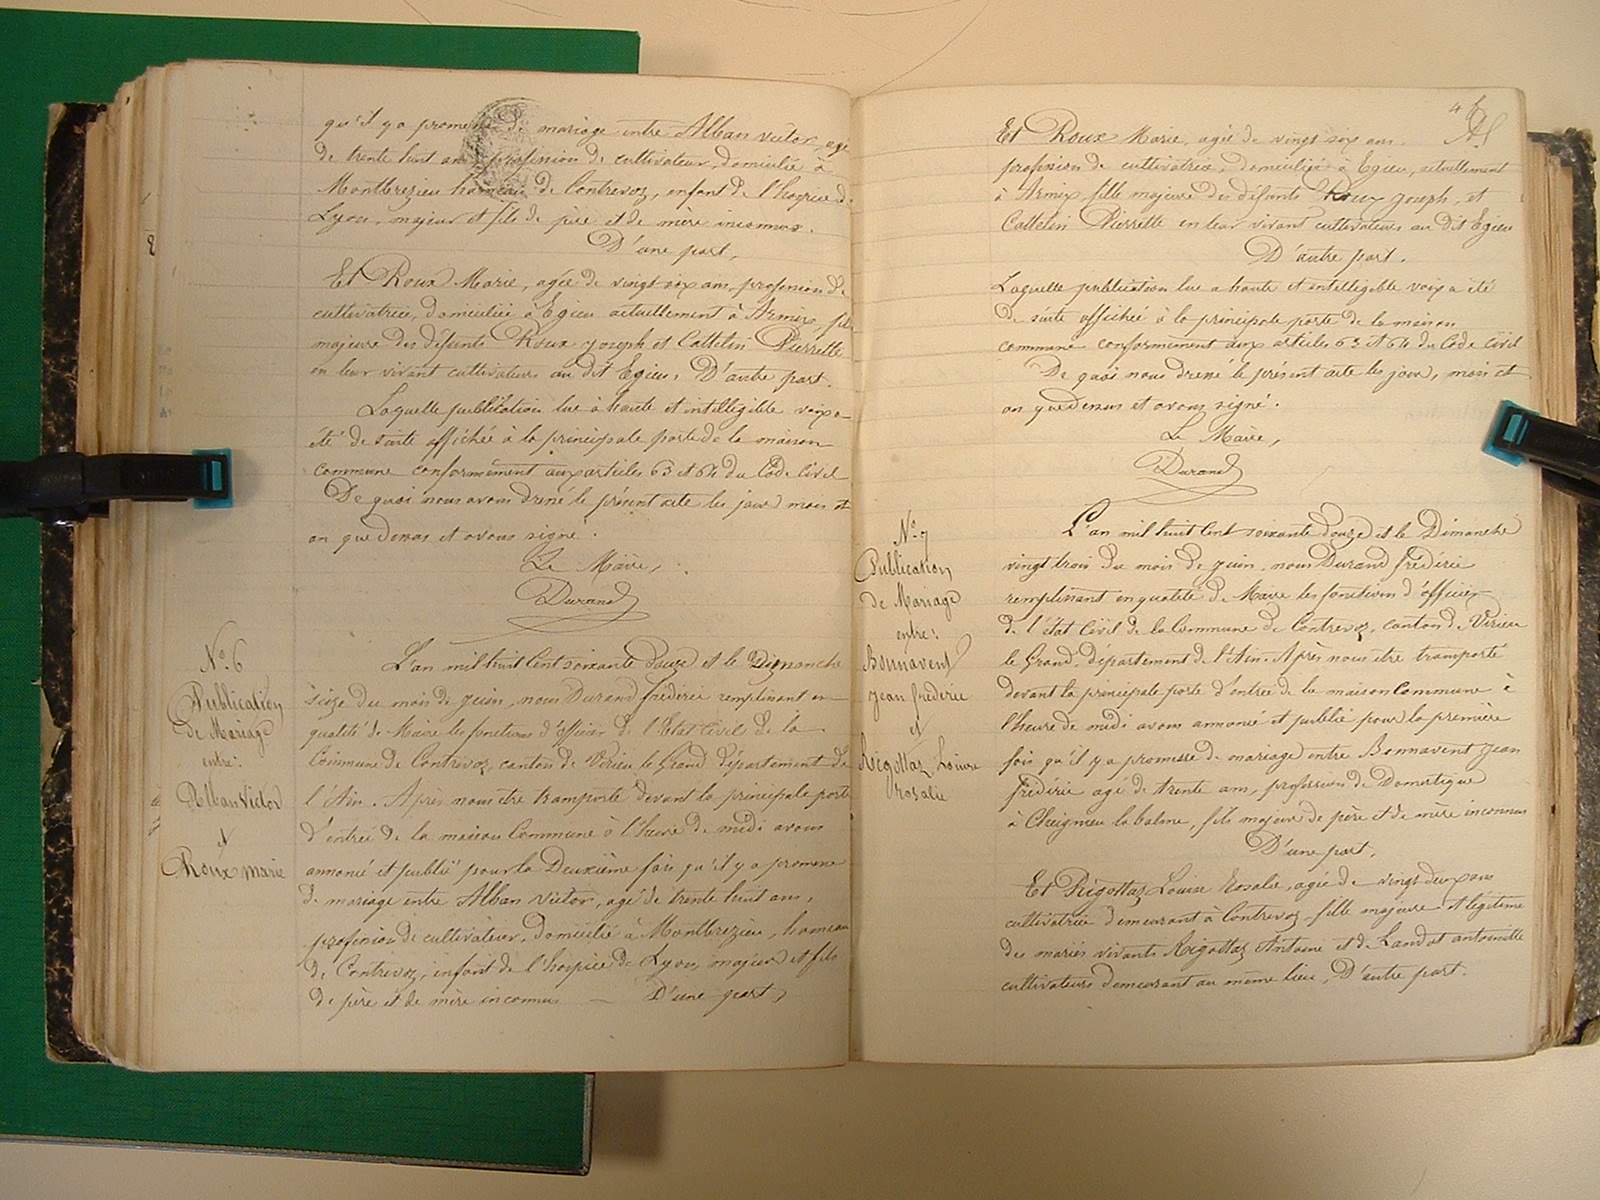 qu'il y a promesse de mariage entre Alban victor, agé
de trente huit ans, profession de cultivateur, domicilié à
Montbrezieu hameau de Contrevoz, enfant de l'hospice de
Lyon, majeur et fils de père et de mère inconnus.
D'une part,
Et Roux Marie, agée de vingt-six ans, profession de
cultivatrice, domiciliée à Egieu actuellement à Armix, fille
majeure des défunts Roux joseph et Cattelin Pierrette
en leur vivant cultivateurs au dit Egieu, D'autre part.
Laquelle publication lue à haute et intelligible voix a
été de suite affichée à la principale porte de la maison
commune conformément aux articles 63 et 64 du Code Civil
De quoi nous avons dressé le présent acte les jour mois et
an que dessus et avons signé.
Le Maire,
Durand
N° 6
Publication
de Mariage
entre:
Alban Victor
et
Roux marie
L'an mil huit Cent soixante douze et le Dimanche
seize du mois de juin, nous Durand frédéric remplissant en
qualité de Maire les fonctions d'officier de l'Etat Civil de la
Commune de Contrevoz, canton de Virieu le Grand département de
l'Ain. Après nous être transporté devant la principale porte
D'entrée de la maison Commune à l'heure de midi avons
annoncé et publié pour la Deuxième fois qu'il y a promesse
de mariage entre Alban Victor, agé de trente huit ans,
profession de cultivateur, domicilié à Montbrezieu, hameau
de Contrevoz, enfant de l'hospice de Lyon, majeur et fils
de père et de mère inconnus — D'une part,
4
Et Roux Marie, agée de vingt six ans.
profession de cultivatrice, domiciliée à Egieu, actuellement
à Armix fille majeure des défunts Roux joseph, et
Cattelin Pierrette en leur vivant cultivateurs au dit Egieu
D'autre part.
Laquelle publication lue a haute et intelligible voix a été
de suite affichée à la principale porte de la maison
commune conformément aux articles 63 et 64 du Code Civil
De quoi nous dressé le présent acte les jour, mois et
an que dessus et avons signé.
Le Maire,
Durand
N° 7
Publication
de Mariage
entre:
Bonnavent
jean frédéric
et
Rigottaz Louise
rosalie
L'an mil huit Cent soixante douze et le Dimanche
vingt trois du mois de juin, nous Durand frédéric
remplissant en qualité de Maire les fonctions d'officier
de l'état Civil de la Commune de Contrevoz, canton de Virieu
le Grand, département de l'Ain. Après nous être transporté
devant la principale porte d'entrée de la maison Commune à
l'heure de midi avons annoncé et publié pour la première
fois qu'il y a promesse de mariage entre Bonnavent jean
frédéric agé de trente ans, profession de Domestique
à Cheignieu la balme, fils majeur de père et de mère inconnus
D'une part,
Et Rigottaz Louise Rosalie, agée de vingt deux ans
cultivatrice demeurant à Contrevoz, fille majeure et légitime
des mariés vivants Rigottaz Antoine et de Landot antoinette
cultivateurs demeurant au même lieu, D'autre part.